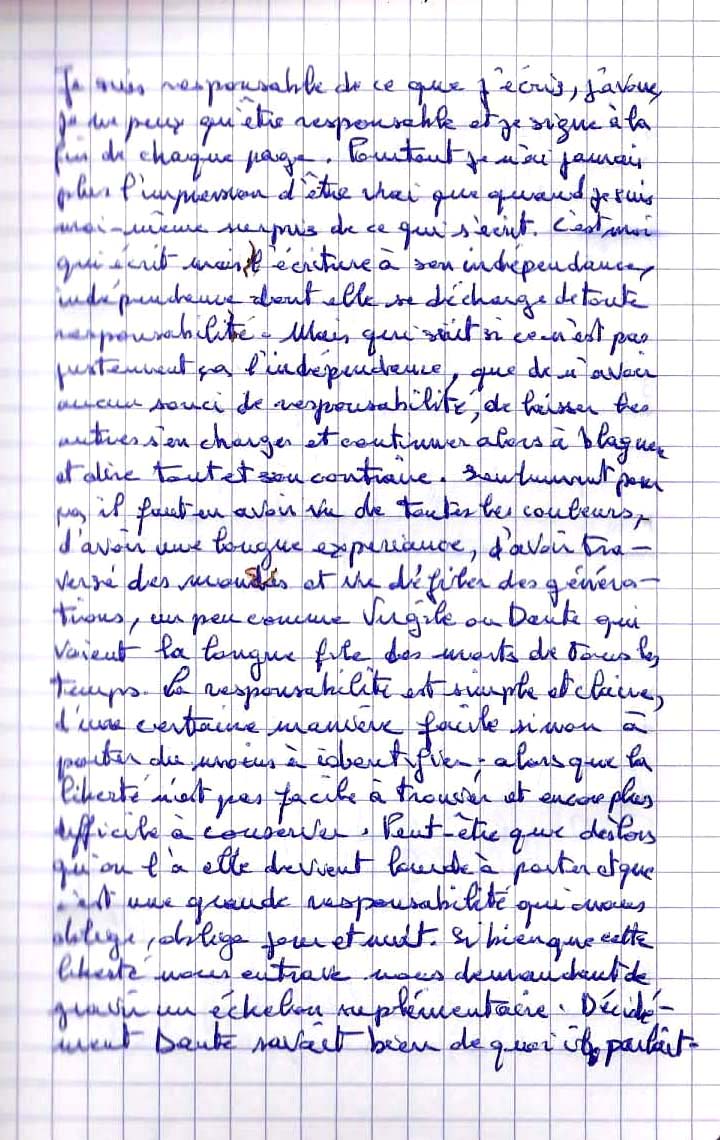 Je suis responsable de ce que j'écris, j'avoue,
je ne peux qu'être responsable et je signe à la
fin de chaque page. Pourtant je n'ai jamais
plus l'impression d'être vrai que quand je suis
moi-même surpris de ce qui s'écrit. C'est moi
qui écrit mais l'écriture à son indépendance,
indépendance dont elle se décharge de toute
responsabilité. Mais qui sait si ce n'est pas
justement ça l'indépendance, que de n'avoir
aucun souci de responsabilité, de laisser les
autres s'en charger et continuer alors à blaguer
et dire tout et son contraire. Seulement pour
ça il faut en avoir vu de toutes les couleurs,
d'avoir une longue experiance, d'avoir tra-
versé des mondes et vu défiler des généra-
tions, un peu comme Virgile ou Dante qui
voient la longue file des morts de tous les
temps. La responsabilité est simple et claire,
d'une certaine manière facile sinon à
porter du moins à identifier; alors que la
liberté n'est pas facile à trouver et encore plus
difficile à conserver. Peut-être que dès lors
qu'on l'a elle devient lourde à porter et que
c'est une grande responsabilité qui nous
oblige, oblige jour et nuit. Si bien que cette
liberté nous entrave nous demandant de
gravir un échelon suplémentaire. Décidé-
ment Dante savait bien de quoi il parlait.